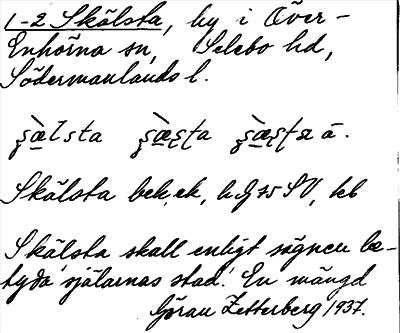 1-2 Skälsta, by i Över-
Enhörna sn, Selebo hd,
Södermanlands l.
Skälsta bek, ek, hG 75 SV, kb
Skälsta skall enligt sägnen be-
tyda 'själarnas stad'. En mängd
Göran Zetterberg 1937.